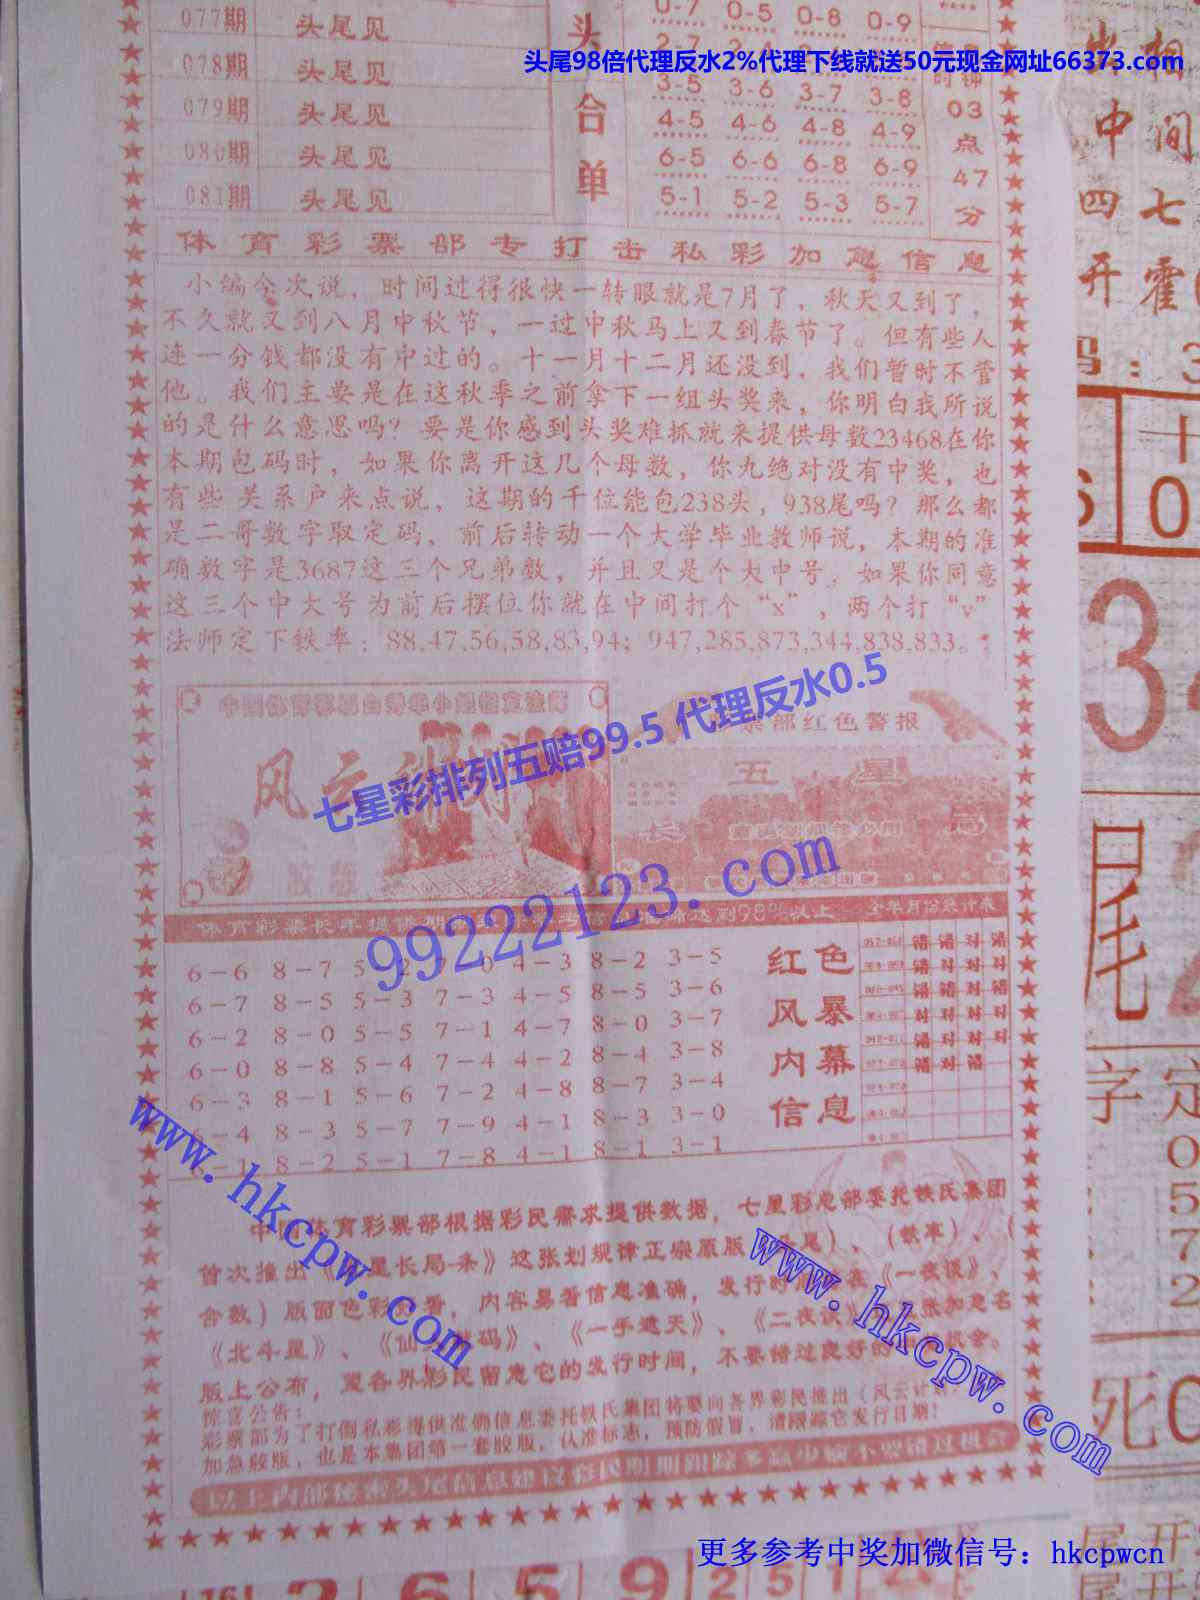 头尾98倍代理反水2%代理下线就送50元现金网址66373.com
077期 头尾见
078期 头尾见
079期 头尾见
080期 头尾见
081期 头尾见
头合单
0-7 0-5 0-8 0-9
3-5 3-6 3-7 3-8
4-5 4-6 4-8 4-9
6-5 6-6 6-8 6-9
5-1 5-2 5-3 5-7
03点47分
体育彩票部专打击私彩加急信息
小编今次说，时间过得很快一转眼就是7月了，秋天又到了，
不久就又到八月中秋节，一过中秋马上又到春节了。但有些人
连一分钱都没有中过的。十一月十二月还没到，我们暂时不管
他。我们主要是在这秋季之前拿下一组头奖来，你明白我所说
的是什么意思吗？要是你感到头奖难抓就来提供母数23468在你
本期包码时，如果你离开这几个母数，你九绝对没有中奖，也
有些关系户来点说，这期的千位能包238头，938尾吗？那么都
是二哥数字取定码、前后转动一个大学毕业教师说，本期的准
确数字是3687这三个兄弟数，并且又是个大中号，如果你同意
这三个中大号为前后摆位你就在中间打个“x”，两个打“v”
法师定下铁率：88,47,56,58,83,94；947,285,873,344,838,833。
七星彩排列五赔99.5 代理反水0.5
风云
部红色警报
五星
长
局
99222123.com
体育彩票长年提供期
达到98%以上
全年月份统计表
6-6 8-7 7-0 4-3 8-2 3-5
6-7 8-5 5-3 7-3 4-5 8-5 3-6
6-2 8-0 5-5 7-1 4-7 8-0 3-7
6-0 8-8 5-4 7-4 4-2 8-4 3-8
6-3 8-1 5-6 7-2 4-8 8-7 3-4
6-4 8-3 5-7 7-9 4-1 8-3 3-0
6-1 8-2 5-1 7-8 4-1 8-1 3-1
红色
风暴
内幕
信息
错 错 对 错
错 对 对 对
错 错 对 错
对 对 对 对
错 对 对 对
错 对 错
www.hkcpw.com
www.hkcpw.com
体育彩票部根据彩民需求提供数据，七星彩总部委托铁氏集团
首次推出《 星长局条》这张划规律正宗原版（ 尾）、（铁率）、（
合数）版面色彩 看，内容易看信息准确，发行时 在《一夜谈》、
《北斗星》、《仙 码》、《一手遮天》、《二夜谈》 张加急名
版上公布，望各界彩民留意它的发行时间，不要错过良好的 机会。
惊喜公告：
彩票部为了打倒私彩提供准确信息委托铁氏集团将要向各界彩民推出《风云计
加急胶版，也是本集团第一套胶版，认准标志，预防假冒，请跟踪它发行日期！
以上内部秘密头尾信息建议彩民期期跟踪多赢少输不要错过机会
出相
中间
四七
开霍
码：3
十
0
34
尾
字定
0
5
7
2
死0
尾开
尾开
16 2 6 5 9 2 5 1
更多参考中奖加微信号：hkcpwcn